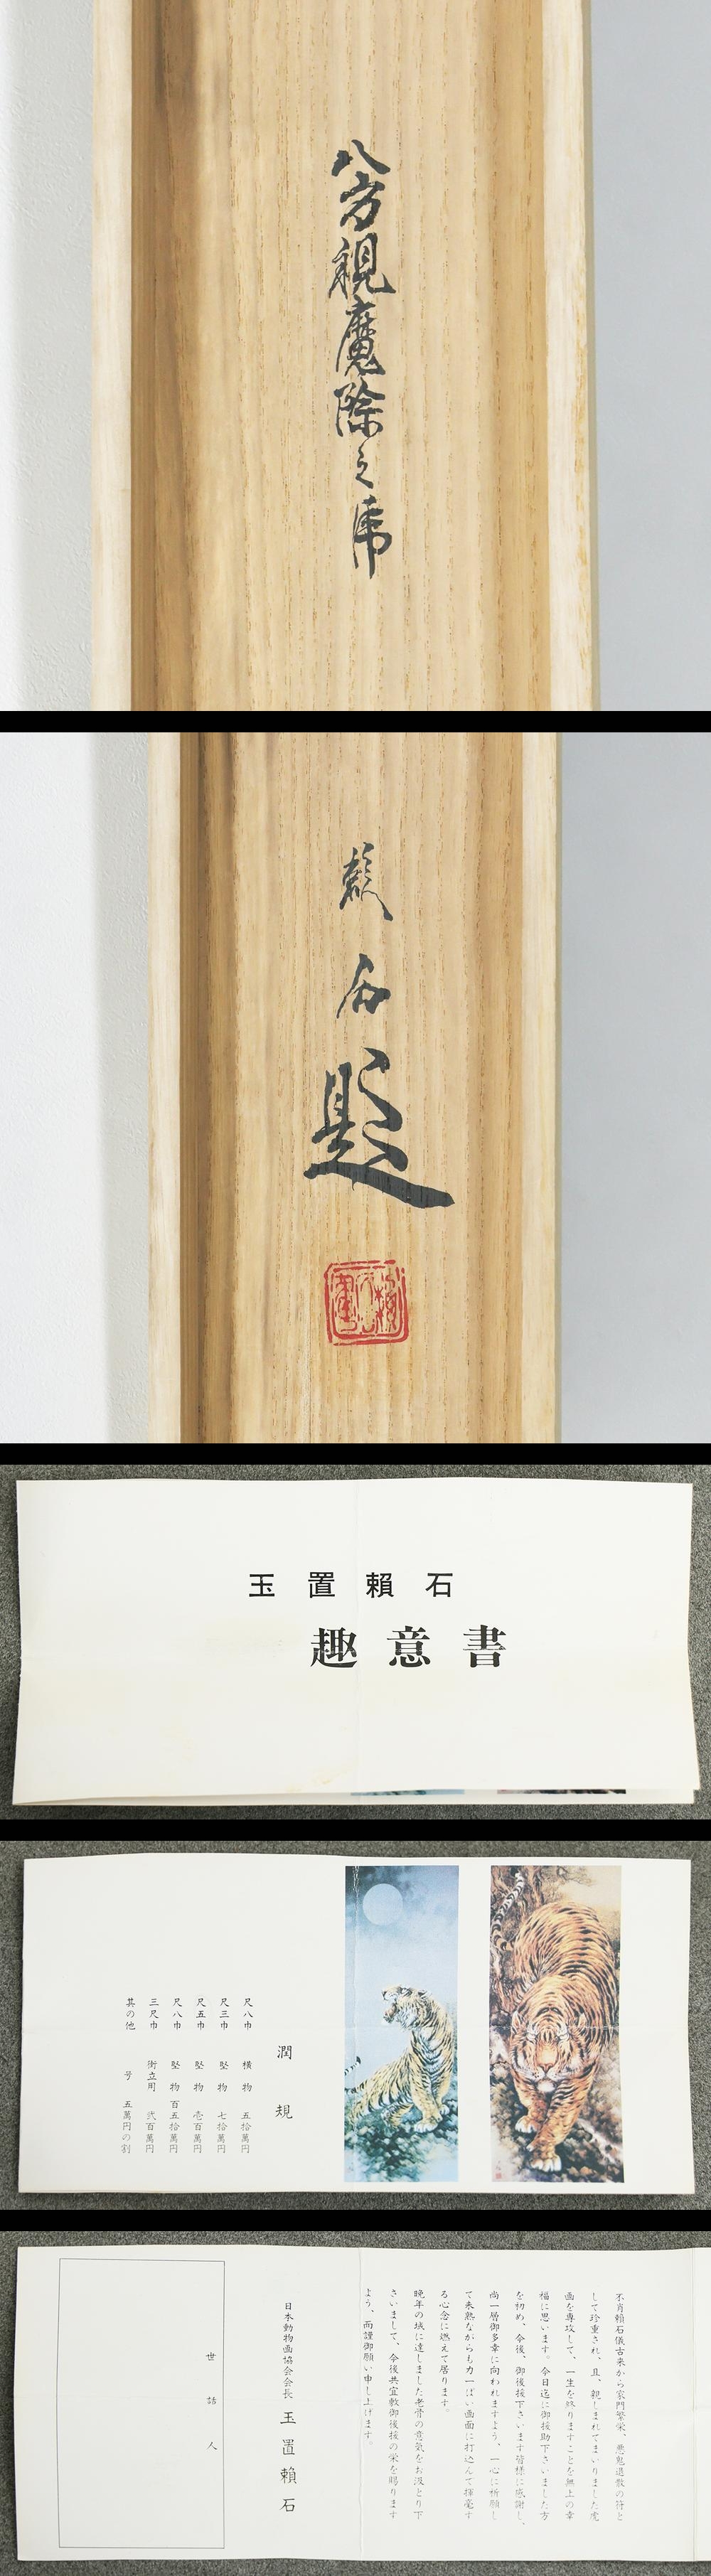 八方視魔除之虎
頼石題
玉置頼石
趣意書
潤規
尺八巾 横物 五拾萬円
尺三巾 竪物 七拾萬円
尺五巾 竪物 壱百萬円
尺八巾 竪物 百五拾萬円
三尺巾 衝立用 弐百萬円
其の他 号 五萬円の割
不肖頼石儀古来から家門繁栄、悪鬼退散の符と
して珍重され、且、親しまれてまいりました虎
画を専攻して、一生を終りますことを無上の幸
福に思います。今日迄に御援助下さいました方
を初め、今後、御後援下さいます皆様に感謝し、
尚一層御多幸に向われますよう、一心に祈願し
て未熟ながらも力一ぱい画面に打込んで揮毫す
る心念に燃えて居ります。
晩年の域に達しました老骨の意気をお汲とり下
さいまして、今後共宜敷御後援の栄を賜ります
よう、両謹御願い申し上げます。
日本動物画協会会長 玉置頼石
世話人